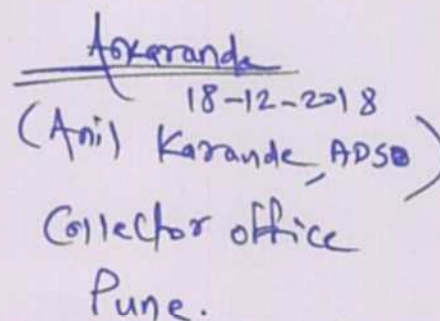 Askarande
18-12-2018
(Anil Karande, ADSO)
Collector office
Pune.